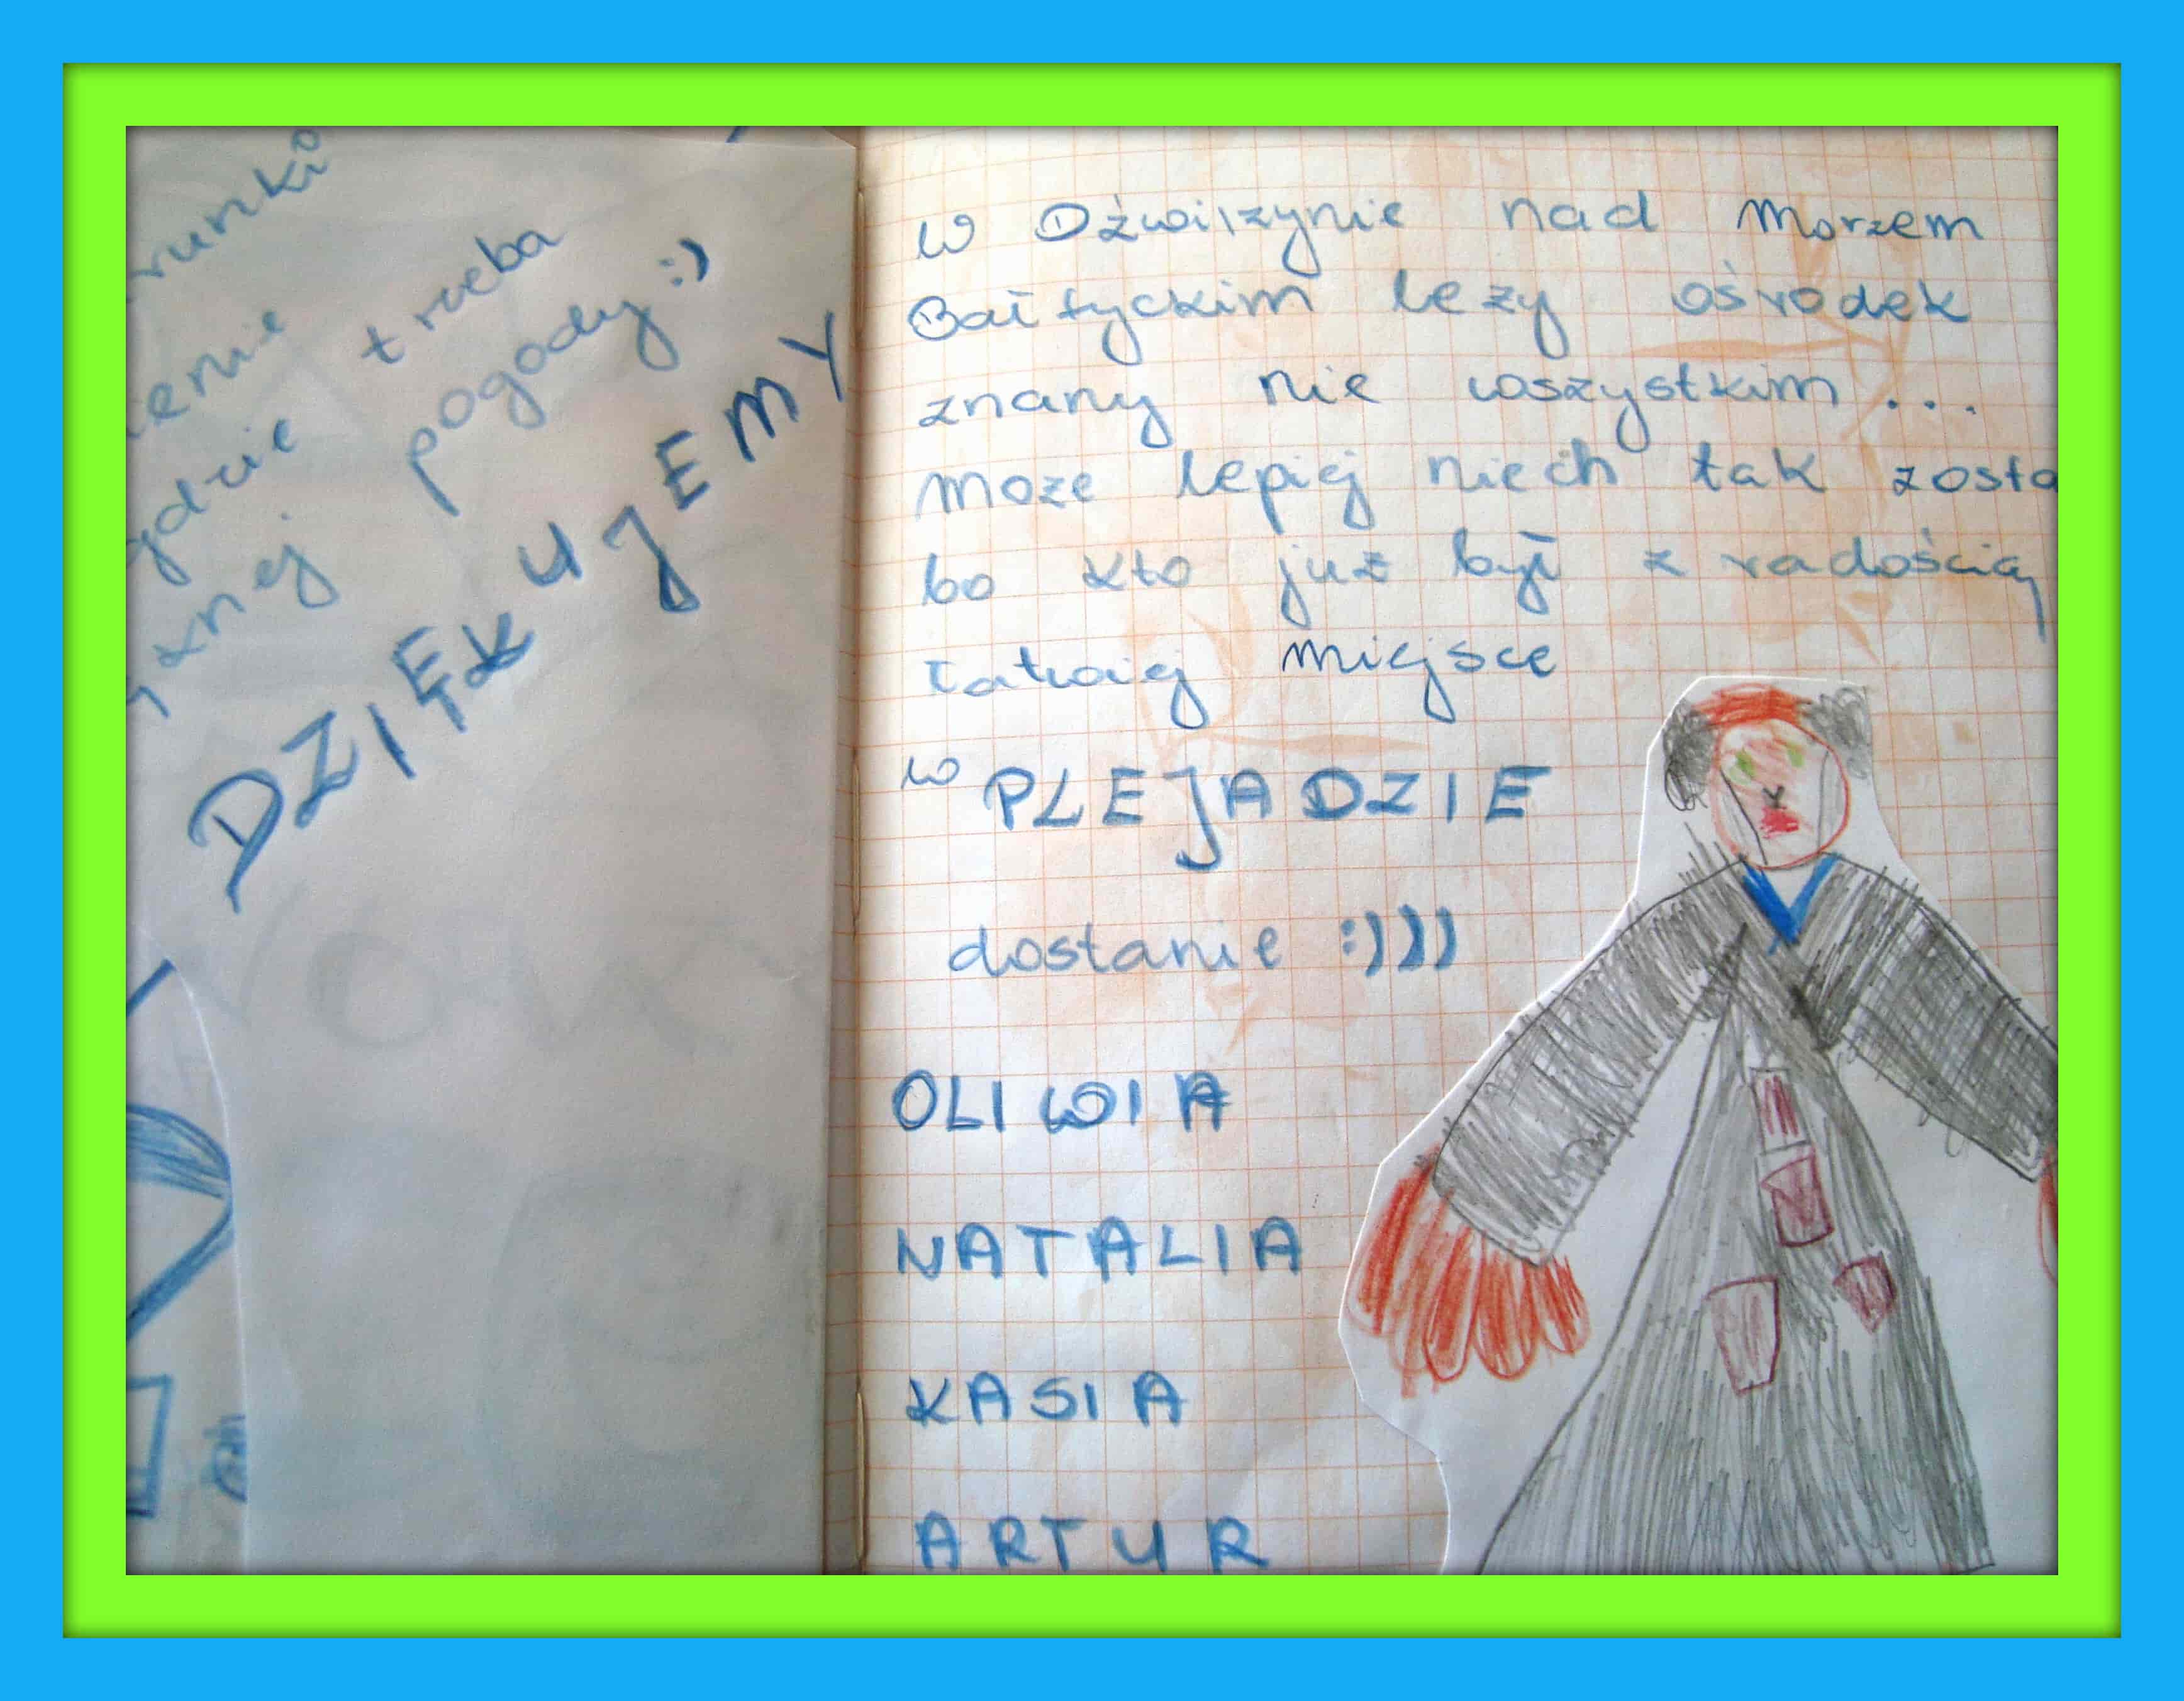 trzeba
pogody :)
DZIĘKUJEMY
w Dźwirzynie nad Morzem
Bałtyckim leży ośrodek
znany nie wszystkim...
może lepiej niech tak zosta
bo kto już był z radością
łatwiej miejsce
w PLEJADZIE
dostanie :)))
OLIWIA
NATALIA
KASIA
ARTUR